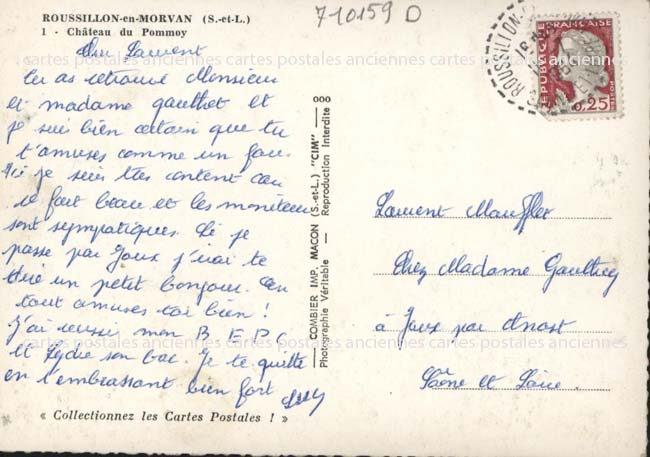 ROUSSILLON-en-MORVAN (S.-et-L.)
1 - Château du Pommoy
710159 D
Mon Laurent
tu as retrouvé Monsieur
et madame gauthet et
je suis bien certain que tu
t'amuses comme un fou.
Ici je suis très content car
il fait beau et les moniteurs
sont sympatiques. Si je
passe par Joux j'irai te
dire un petit bonjour. En
tout amuses toi bien !
J'ai réussi mon B E P C
et Lydie son bac. Je te quitte
en t'embrassant bien fort
« Collectionnez les Cartes Postales ! »
COMBIER IMP. MACON (S.-et-L.) "CIM"
Photographie Véritable - Reproduction Interdite
ROUSSILLON
REPUBLIQUE FRANÇAISE
0,25
POSTES
Laurent Maufflet
Chez Madame Gauthey
à Joux par Anost
Saône et Loire
cartes postales anciennes cartes postales anciennes cartes postales anciennes
cartes postales anciennes cartes postales anciennes cartes postales anciennes